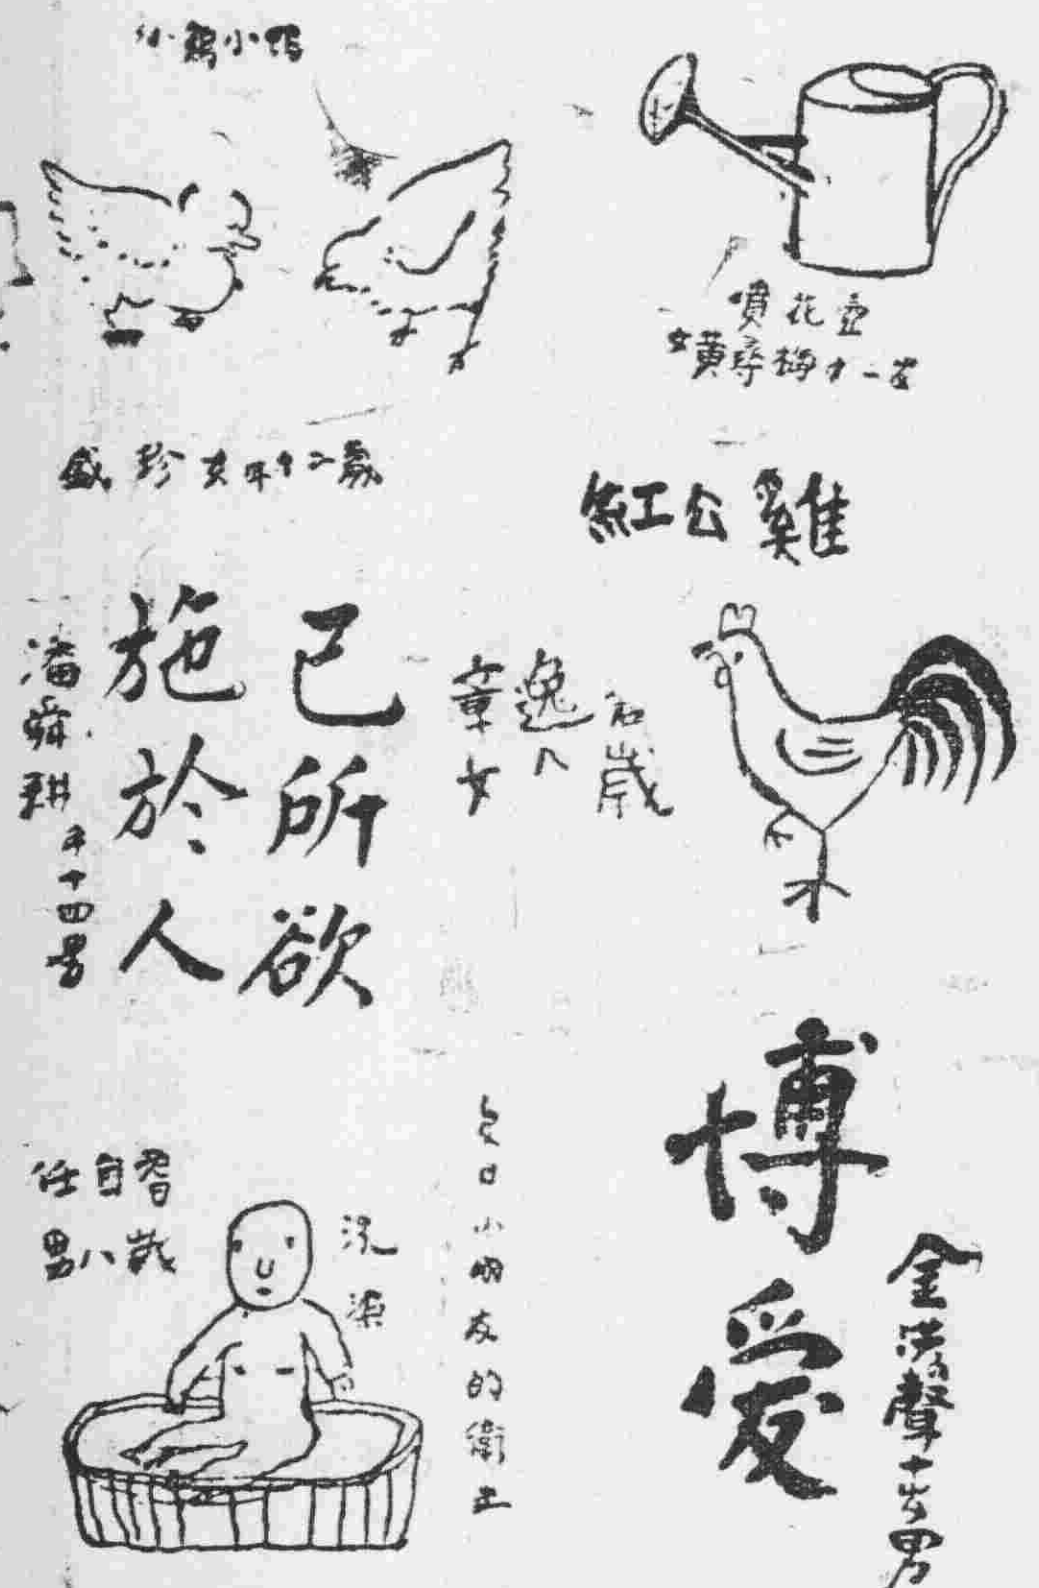 小鷄小鴨
噴花壺
女黃尋梅十一岁
盛珍女年十二歲
紅公雞
己所欲
施於人
潘舜耕年十四男
章女
逸人
六歲
博愛
金洪聲十岁男
任自智
男八歲
洗澡
夏日小朋友的衛生